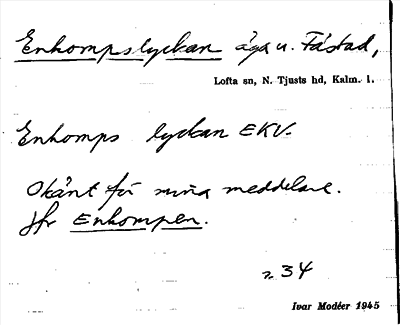 Enkompslyckan äga u. Fåstad,
Lofta sn, N. Tjusts hd, Kalm. l.
Enkomps lyckan EKV.
Okänt för mina meddelare.
Jfr Enkompen.
34
Ivar Modéer 1945